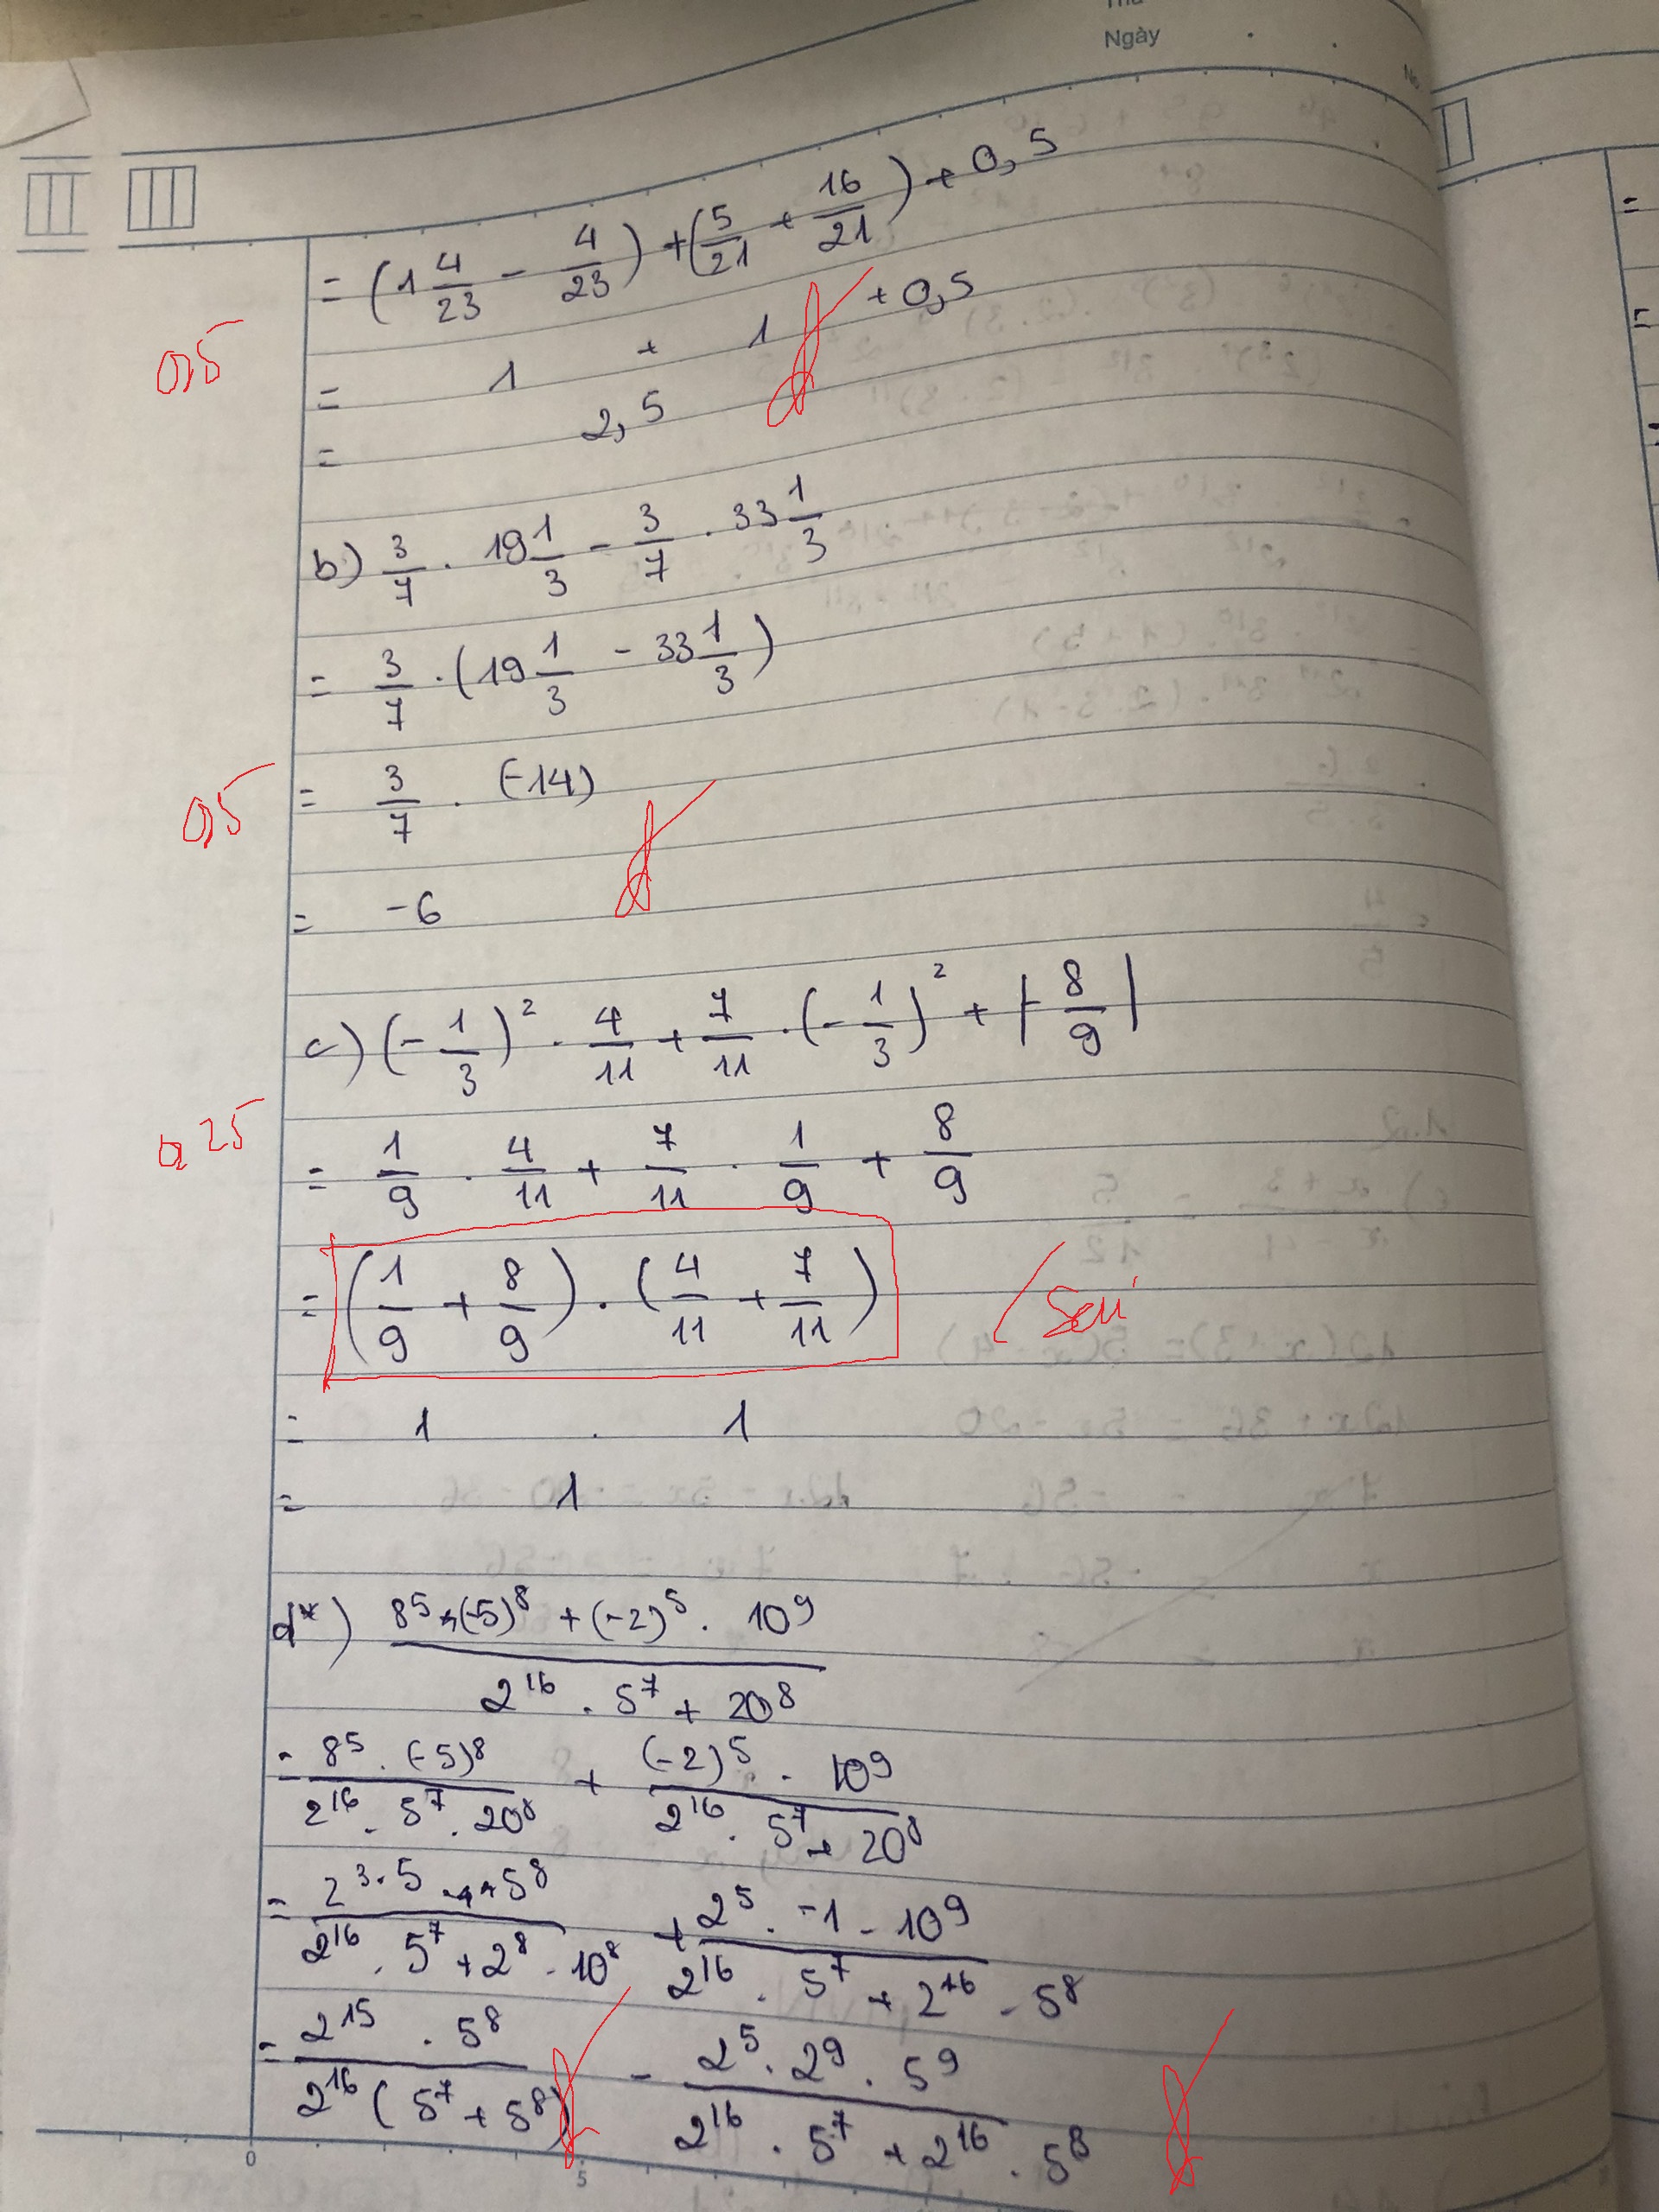 Ngày
= (1 4/23 - 4/23) + (5/21 + 16/21) + 0,5
= 1 + 1 + 0,5
0,5
= 2,5
b) 3/7 . 19 1/3 - 3/7 . 33 1/3
= 3/7 . (19 1/3 - 33 1/3)
0,5
= 3/7 . (-14)
= -6
c) (-1/3)² . 4/11 + 7/11 . (-1/3)² + |-8/9|
0,25
= 1/9 . 4/11 + 7/11 . 1/9 + 8/9
= (1/9 + 8/9) . (4/11 + 7/11) Sai
= 1 . 1
= 1
d*) (8⁵ . (-5)⁸ + (-2)⁵ . 10⁹) / (2¹⁶ . 5⁷ + 20⁸)
= (8⁵ . (-5)⁸) / (2¹⁶ . 5⁷ . 20⁸) + ((-2)⁵ . 10⁹) / (2¹⁶ . 5⁷ + 20⁸)
= (2³·⁵ . 5⁸) / (2¹⁶ . 5⁷ + 2⁸ . 10⁸) + (2⁵ . -1 . 10⁹) / (2¹⁶ . 5⁷ + 2¹⁶ . 5⁸)
= (2¹⁵ . 5⁸) / (2¹⁶ (5⁷ + 5⁸)) - (2⁵ . 2⁹ . 5⁹) / (2¹⁶ . 5⁷ + 2¹⁶ . 5⁸)
0 5